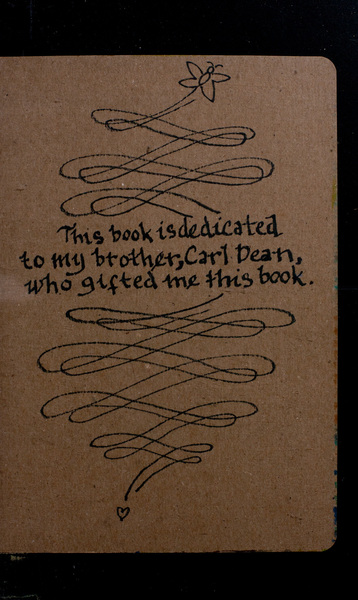 This book is dedicated
to my brother, Carl Dean,
who gifted me this book.